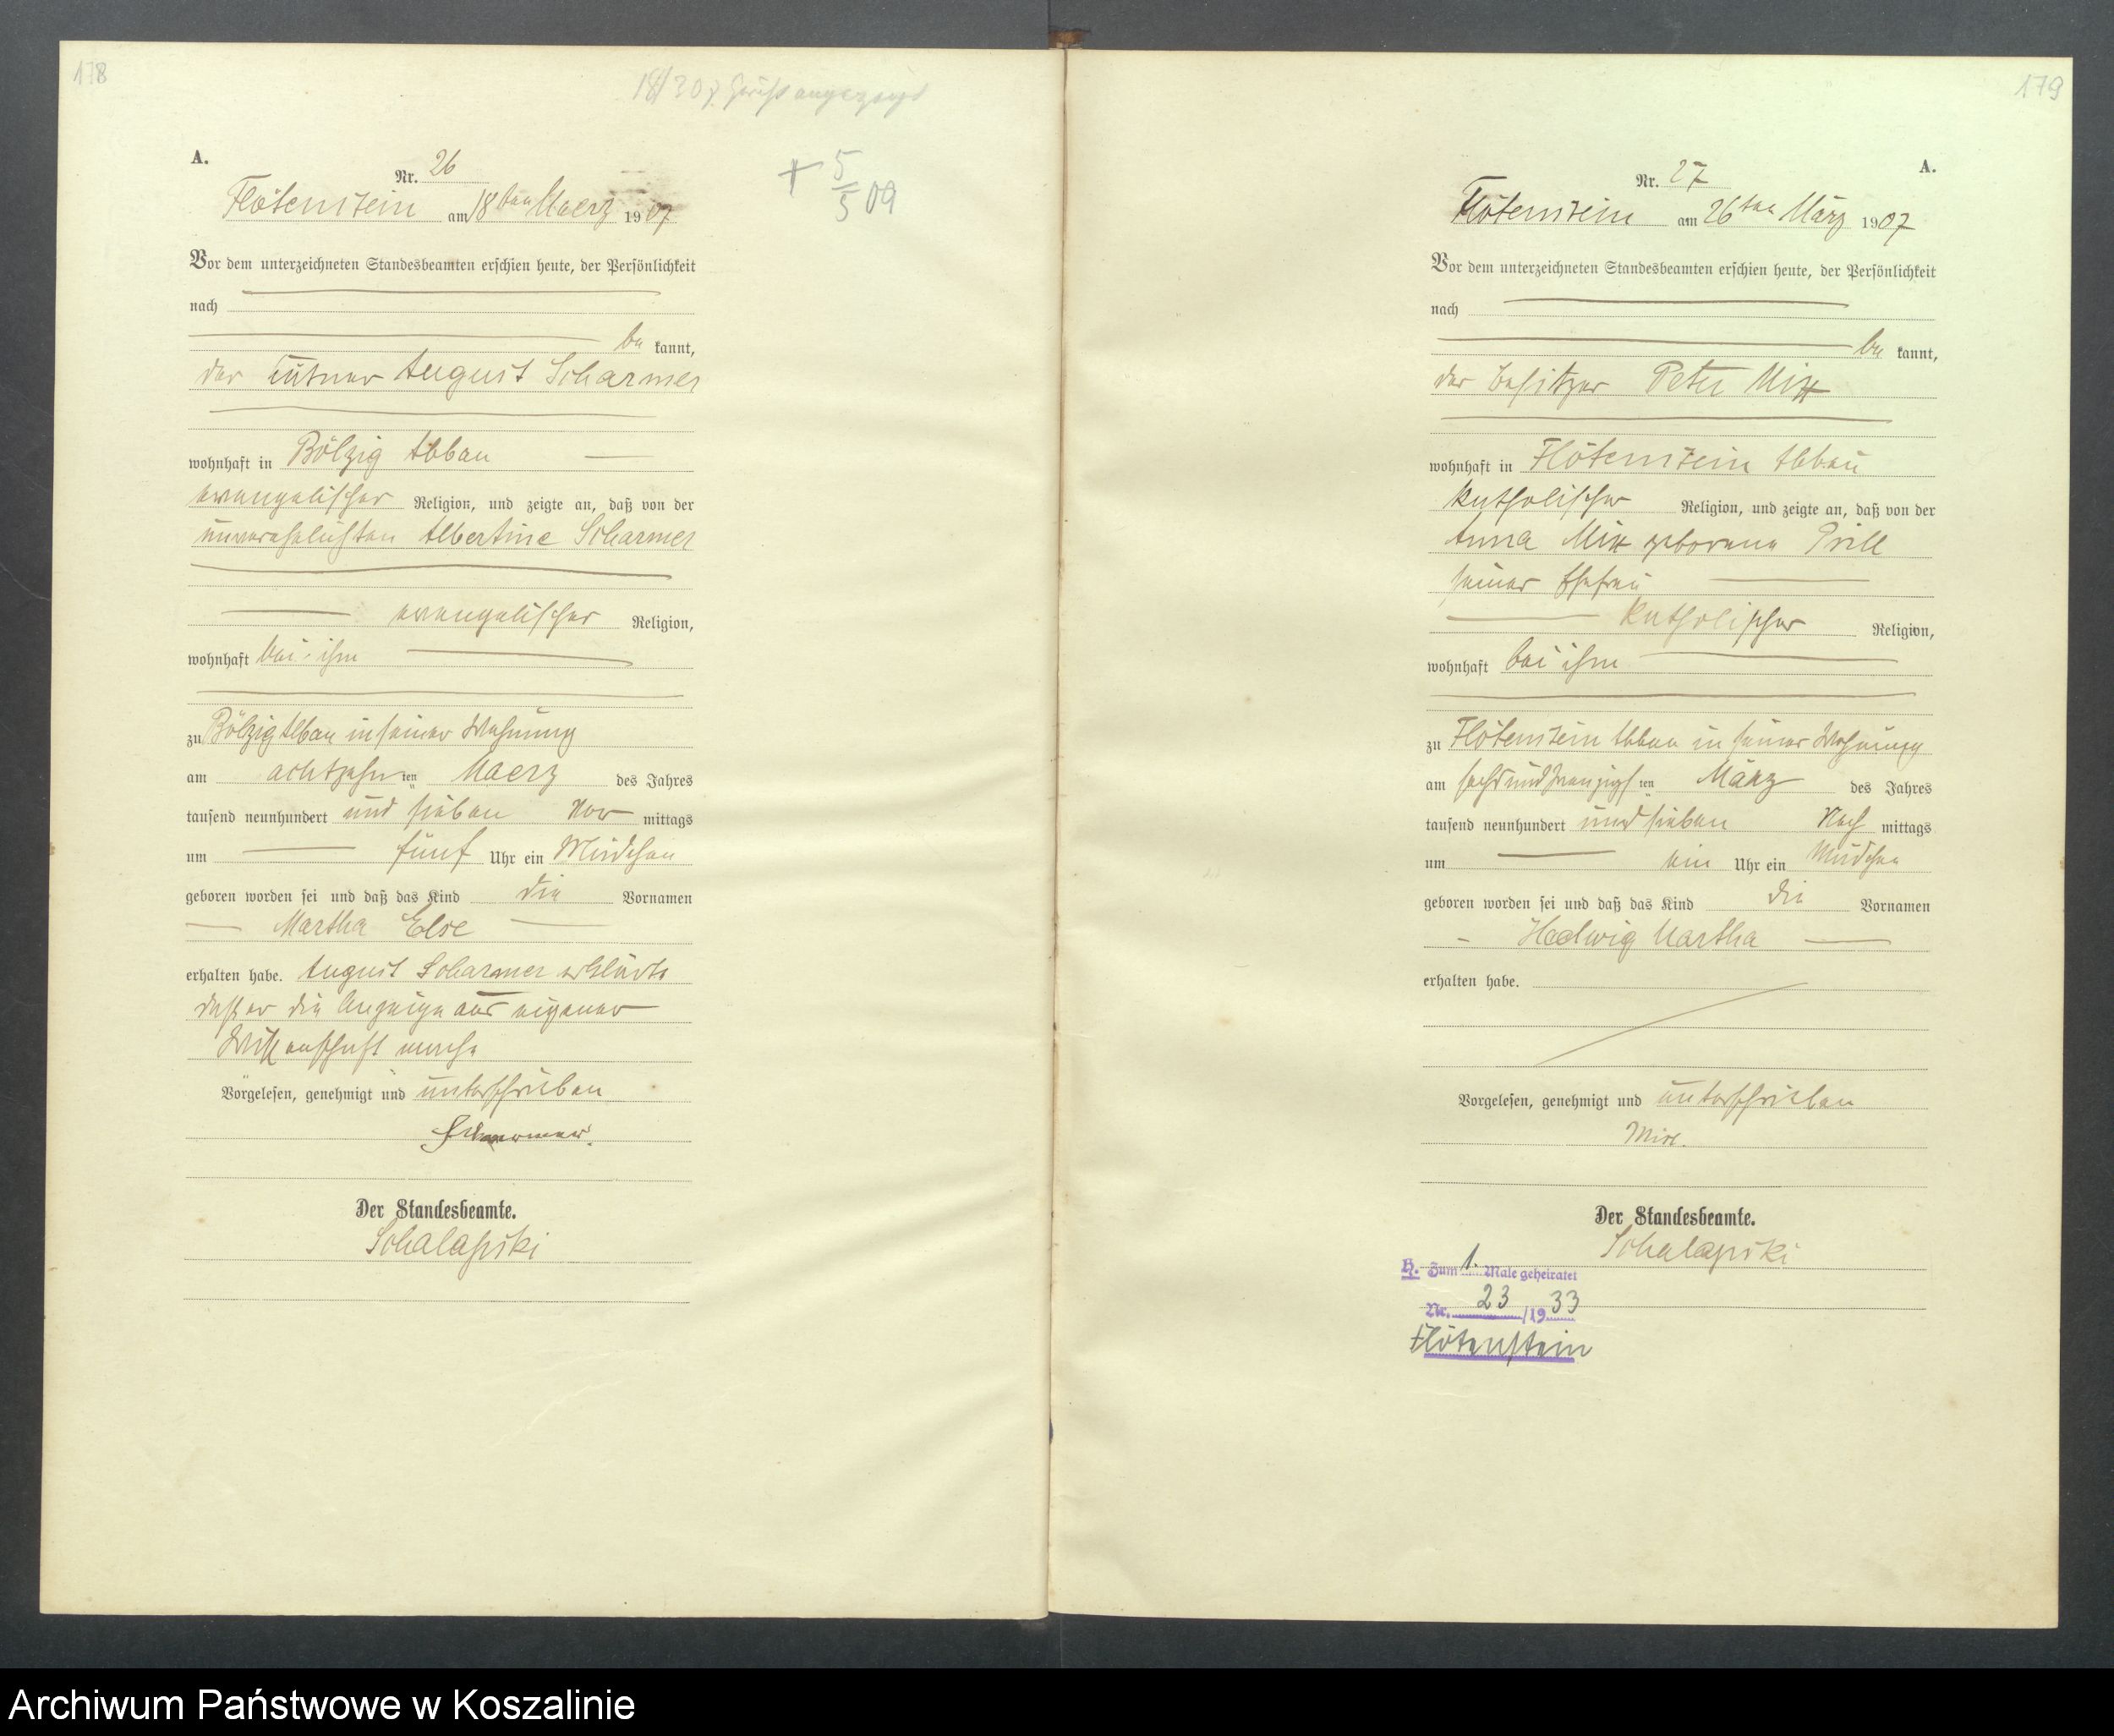 178
A.
Nr. 26
+ 5/5 09
Flötenstein am 18ten Maerz 1907
Vor dem unterzeichneten Standesbeamten erschien heute, der Persönlichkeit
nach
be kannt,
der August Scharmer
wohnhaft in Bölzig Abbau
evangelischer Religion, und zeigte an, daß von der
unverehelichten Albertine Scharmer
evangelischer Religion,
wohnhaft bei ihm
zu Bölzig Abbau in seiner Wohnung
am achtzehn ten Maerz des Jahres
tausend neunhundert und sieben Vor mittags
um fünf Uhr ein Mädchen
geboren worden sei und daß das Kind die Vornamen
Martha Else
erhalten habe. August Scharmer erklärte
daß er die Anzeige aus eigener
Wissenschaft mache
Vorgelesen, genehmigt und unterschrieben
Scharmer.
Der Standesbeamte.
Schalapski
179
A.
Nr. 27
Flötenstein am 26ten März 1907
Vor dem unterzeichneten Standesbeamten erschien heute, der Persönlichkeit
nach
be kannt,
der Besitzer Peter Mix
wohnhaft in Flötenstein Abbau
katholischer Religion, und zeigte an, daß von der
Anna Mix geborene Prill
seiner Ehefrau
katholischer Religion,
wohnhaft bei ihm
zu Flötenstein Abbau in seiner Wohnung
am sechsundzwanzigs ten März des Jahres
tausend neunhundert und sieben Nach mittags
um ein Uhr ein Mädchen
geboren worden sei und daß das Kind die Vornamen
Hedwig Martha
erhalten habe.
Vorgelesen, genehmigt und unterschrieben
Mix.
Der Standesbeamte.
Schalapski
H. Zum 1. Male geheiratet
Nr. 23 /1933
Flötenstein
Archiwum Państwowe w Koszalinie